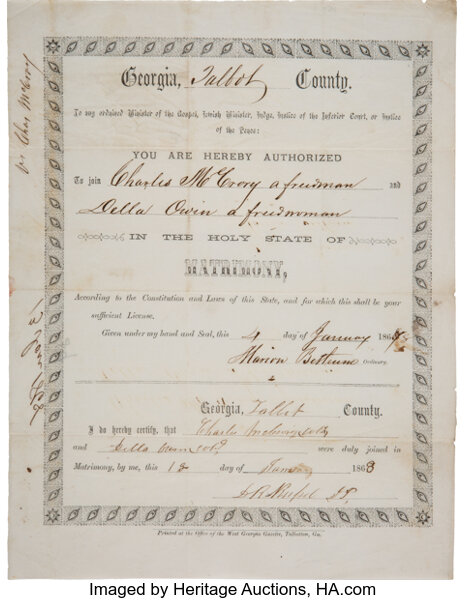 Georgia, Talbot County.
To any ordained Minister of the Gospel, Jewish Minister, Judge, Justice of the Inferior Court, or Justice
of the Peace:
YOU ARE HEREBY AUTHORIZED
To join Charles McCrory a freedman and
Della Owin a freedwoman
IN THE HOLY STATE OF
MATRIMONY,
According to the Constitution and Laws of this State, and for which this shall be your
sufficient License.
Given under my hand and Seal, this 4 day of January 186
Marion Bethune Ordinary.
Georgia, Talbot County.
I do hereby certify, that Charles
and Della were duly joined in
Matrimony, by me, this 12 day of January 1868
J.P.
Printed at the Office of the West Georgia Gazette, Talbotton, Ga.
Chas McCrory
Imaged by Heritage Auctions, HA.com